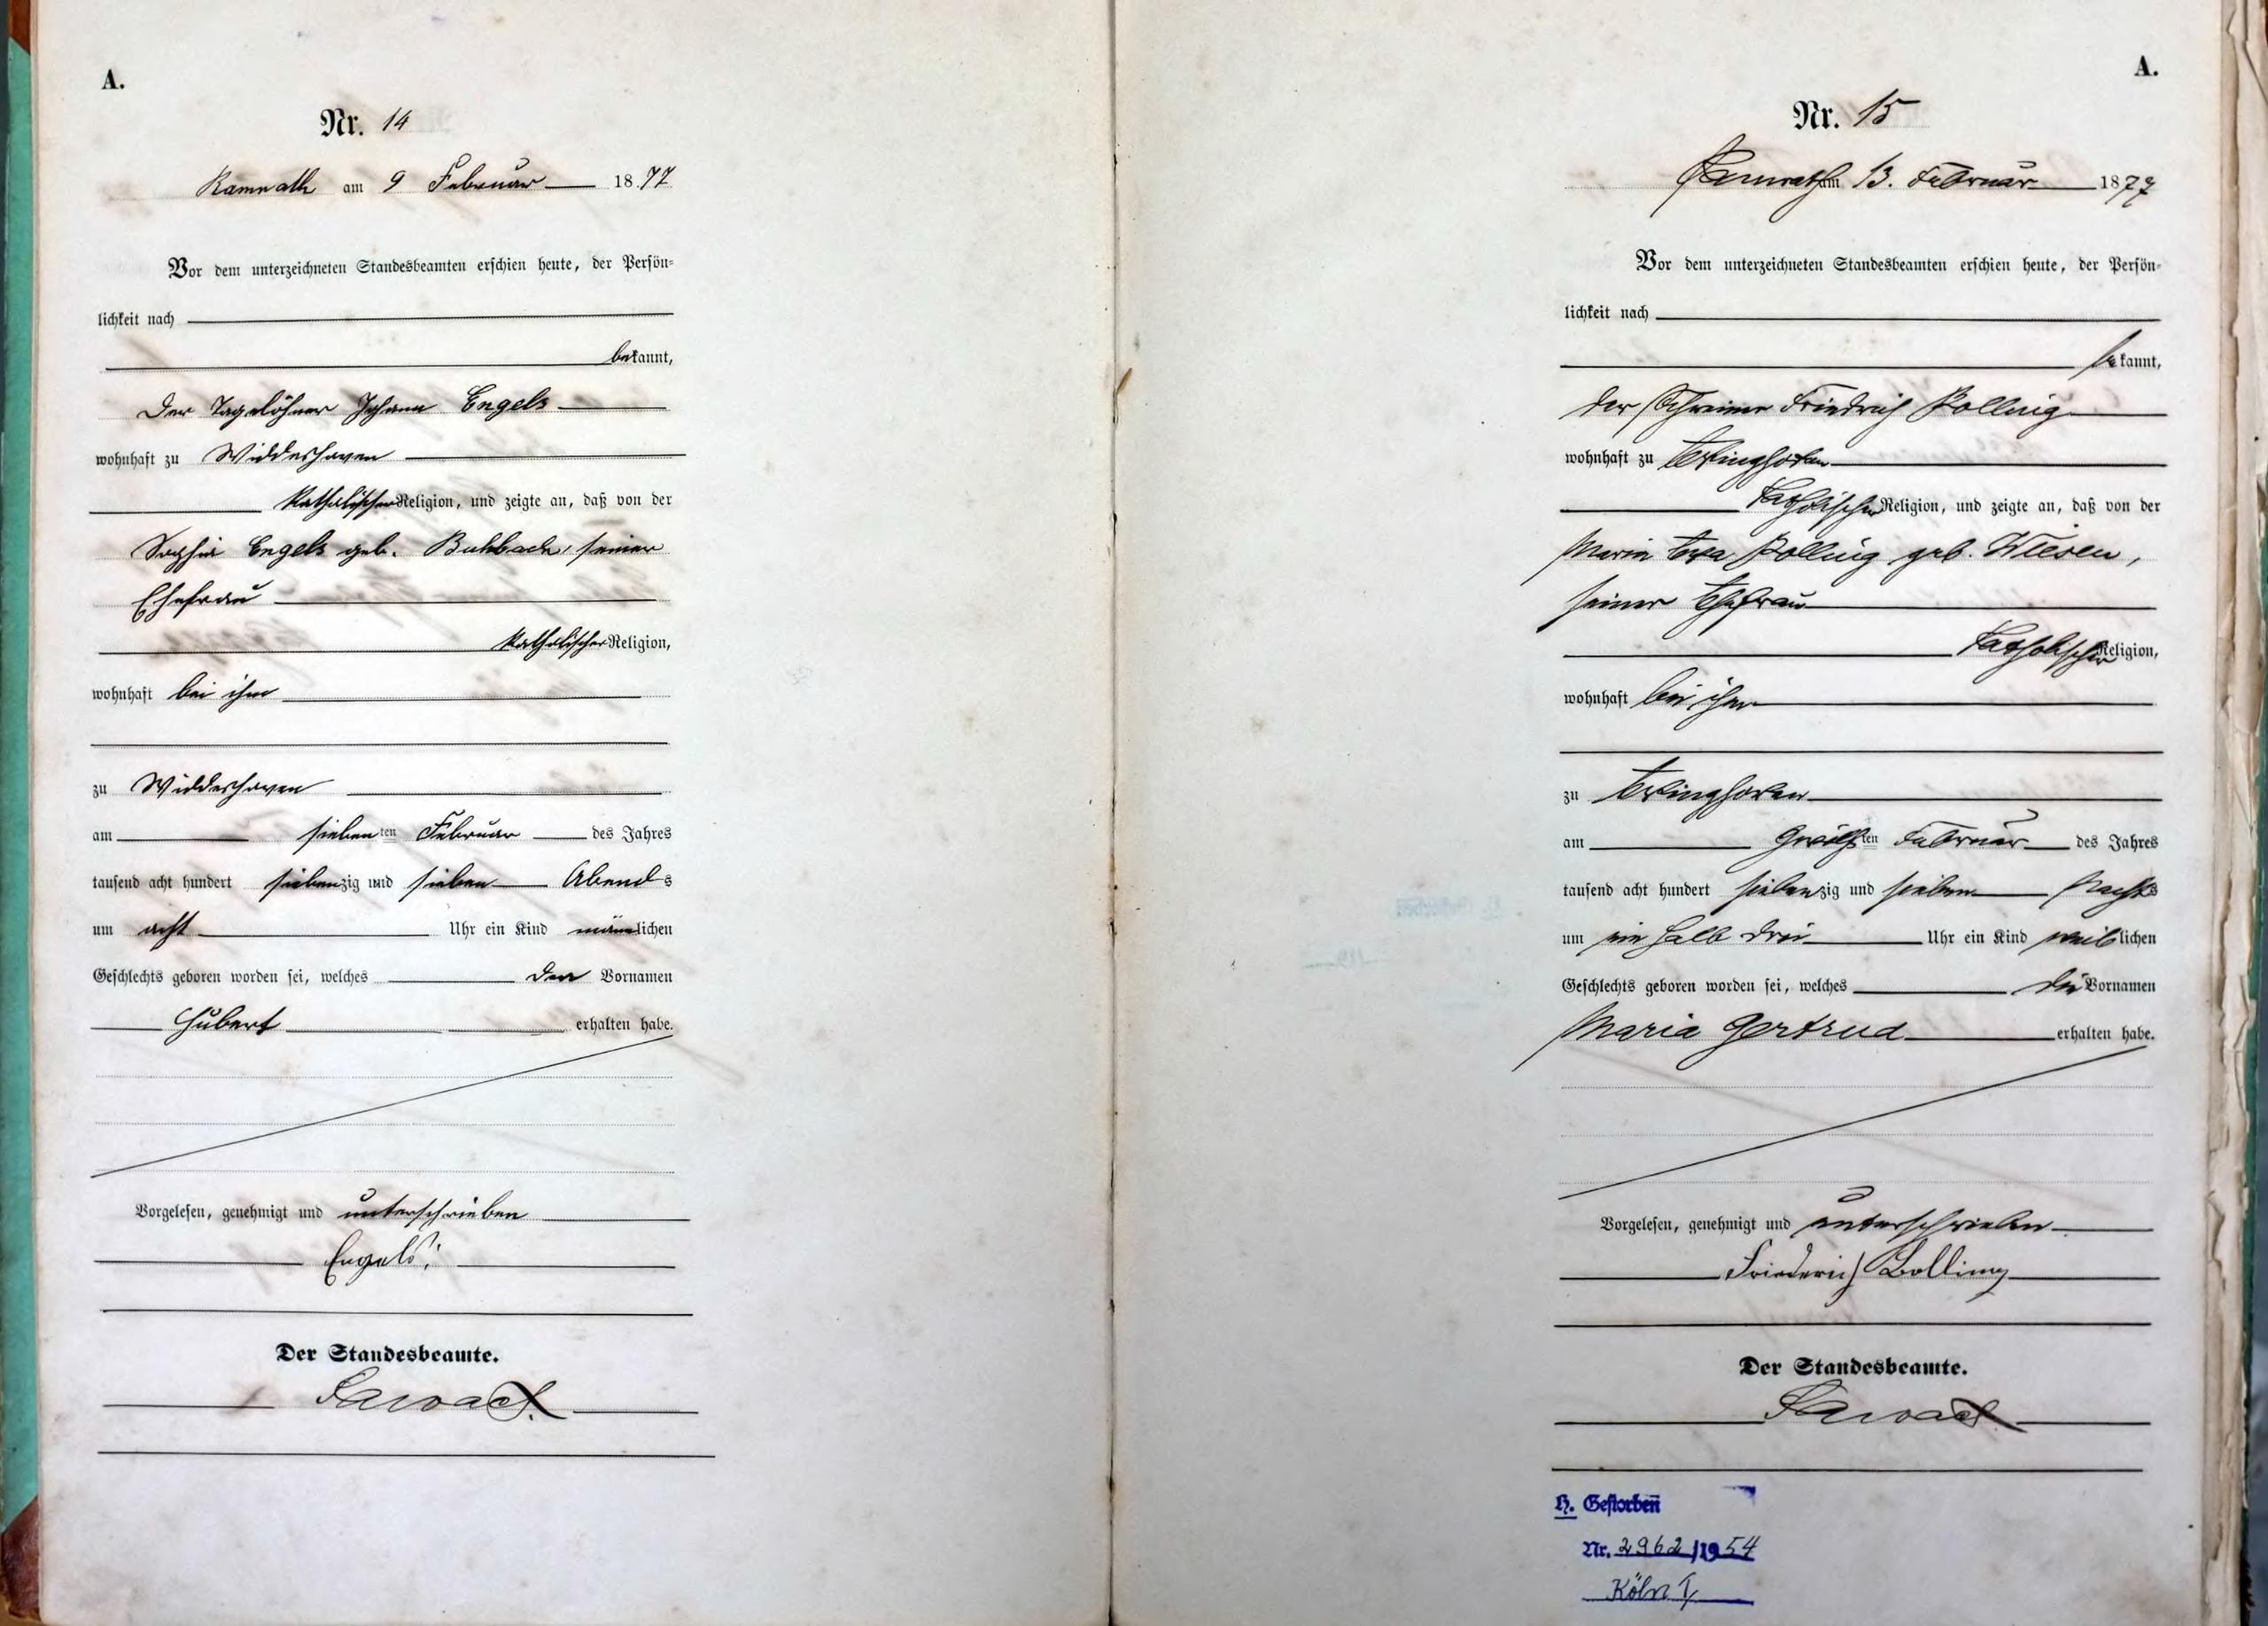 A.
Nr. 14
Ramrath am 9 Februar 1877
Vor dem unterzeichneten Standesbeamten erschien heute, der Persön-
lichkeit nach
bekannt,
der Tagelöhner Johann Engels
wohnhaft zu Widdeshoven
katholischer Religion, und zeigte an, daß von der
Sophia Engels geb. Buhbach, seiner
Ehefrau
katholischer Religion,
wohnhaft bei ihm
zu Widdeshoven
am siebenten Februar des Jahres
tausend acht hundert siebenzig und sieben Abends
um acht Uhr ein Kind männlichen
Geschlechts geboren worden sei, welches den Vornamen
Hubert erhalten habe.
Vorgelesen, genehmigt und unterschrieben
Engels
Der Standesbeamte.
A.
Nr. 15
Ramrath am 13. Februar 1877
Vor dem unterzeichneten Standesbeamten erschien heute, der Persön-
lichkeit nach
bekannt,
der Schreiner Friedrich Bolling
wohnhaft zu Evinghoven
katholischer Religion, und zeigte an, daß von der
Maria Eva Bolling geb. Wiesen,
seiner Ehefrau
katholischer Religion,
wohnhaft bei ihm
zu Evinghoven
am zwölften Februar des Jahres
tausend acht hundert siebenzig und sieben Nachts
um ein halb drei Uhr ein Kind weiblichen
Geschlechts geboren worden sei, welches die Vornamen
Maria Gertrud erhalten habe.
Vorgelesen, genehmigt und unterschrieben
Friederich Bolling
Der Standesbeamte.
H. Gestorben
Nr. 2962/1954
Köln I